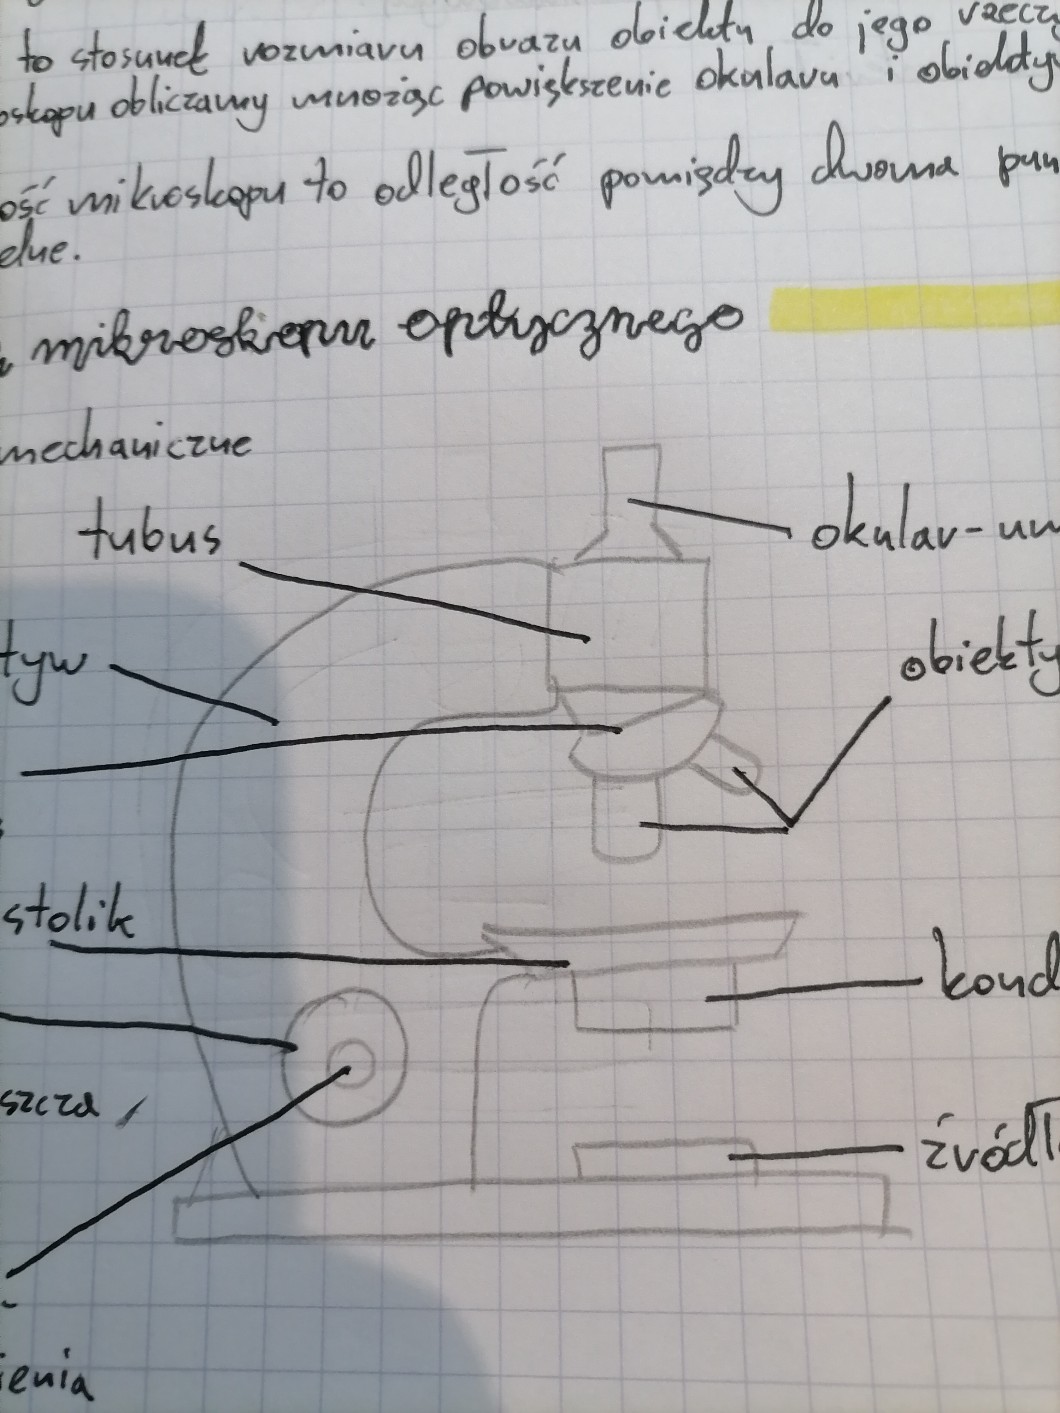 to stosunek rozmiaru obrazu obiektu do jego rzeczy
oskopu obliczamy mnożąc powiększenie okularu i obiekty
ość mikroskopu to odległość pomiędzy dwoma pun
elne.
mikroskopu optycznego
mechaniczne
tubus
okular-um
tyw
obiekty
stolik
kond
szcza
źródł
ienia